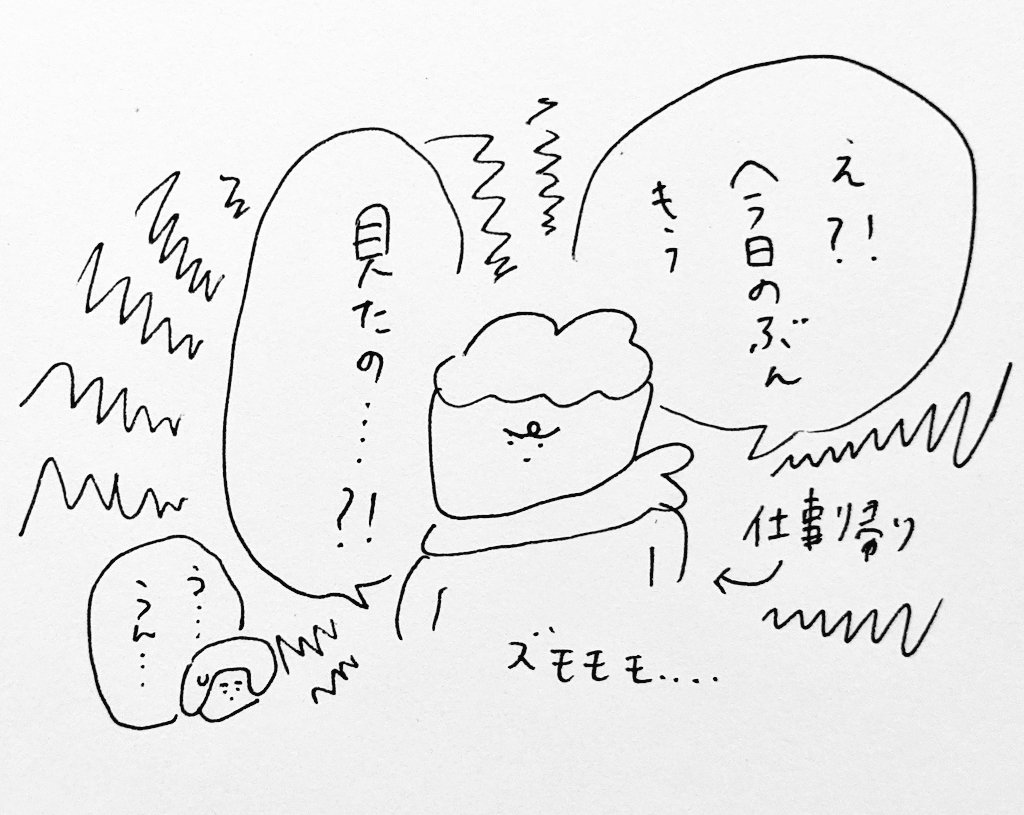 え?!
今日のぶん
もう
見たの……?!
仕事帰り
ズモモモ....
う……
うん……